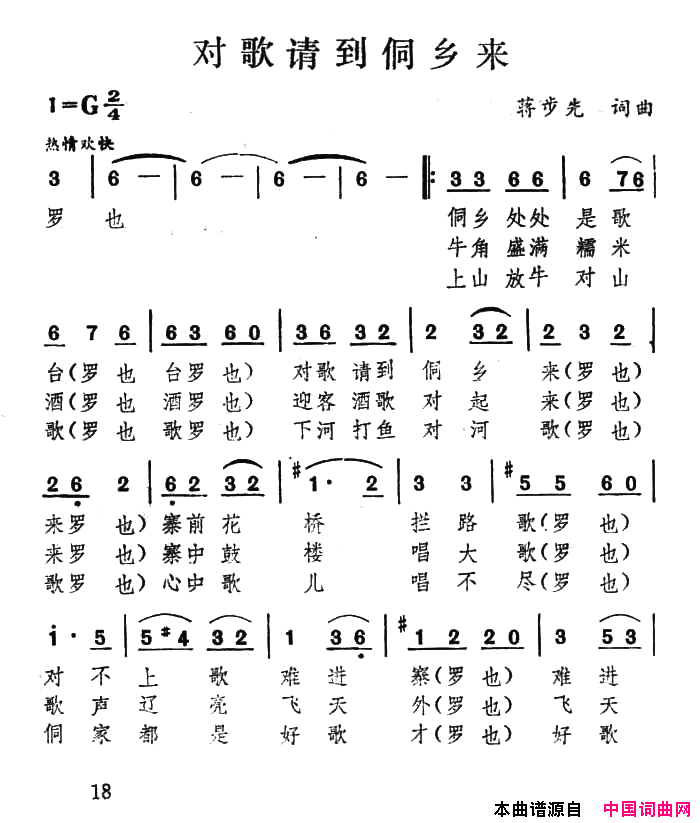 对歌请到侗乡来
1=G 2/4 蒋步先 词曲
热情欢快
3 | 6 — | 6 — | 6 — | 6 — |: 33 66 | 6 76 |
罗 也 侗乡 处处 是 歌
牛角 盛满 糯 米
上山 放牛 对 山
6 7 6 | 63 60 | 36 32 | 2 32 | 2 3 2 |
台(罗 也 台罗 也) 对歌 请到 侗 乡 来(罗 也)
酒(罗 也 酒罗 也) 迎客 酒歌 对 起 来(罗 也)
歌(罗 也 歌罗 也) 下河 打鱼 对 河 歌(罗 也)
26 2 | 62 32 | #1· 2 | 3 3 | #5 5 60 |
来罗 也) 寨前 花 桥 拦 路 歌(罗 也)
来罗 也) 寨中 鼓 楼 唱 大 歌(罗 也)
歌罗 也) 心中 歌 儿 唱 不 尽(罗 也)
1· 5 | 5#4 32 | 1 36 | #12 20 | 3 53 |
对 不 上 歌 难 进 寨(罗 也) 难 进
歌 声 辽 亮 飞 天 外(罗 也) 飞 天
侗 家 都 是 好 歌 才(罗 也) 好 歌
18
本曲谱源自 中国词曲网